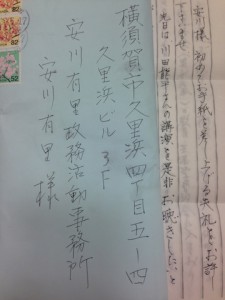 横須賀市久里浜四丁目五ー四
久里浜ビル 3F
安川有里政務活動事務所
安川有里 様
安川様 初めてお手紙を差し上げる失礼をお許
下さいませ
先日は 講演を是非お聴きしたいと